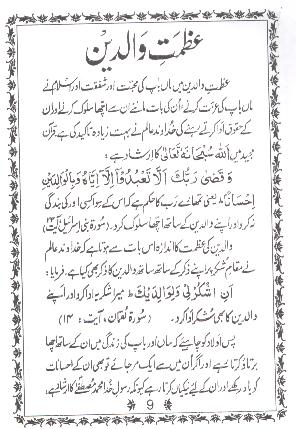 عظمت والدین
عظمتِ والدین میں ماں باپ کی محبت اور شفقت اور اسلام نے
ماں باپ کی عزت کرنے، اُن کی بات ماننے اُن سے اچھا سلوک کرنے اور ان
کے حقوق ادا کرتے رہنے کی خداوند عالم نے بہت زیادہ تاکید کی ہے قرآن
مجید میں اَللهُ سُبْحَانَهٗ تَعَالٰی کا ارشاد ہے:
وَ قَضٰى رَبُّكَ اَلَّا تَعْبُدُوْآ اِلَّآ اِيَّاهُ وَبِالْوَالِدَيْنِ
اِحْسَانًا یعنی تمہارے رب کا حکم ہے کہ اس کے سوا کسی اور کی بندگی
نہ کرو اور اپنے والدین کے ساتھ اچھا سلوک کرو۔ (سورۃ بنی اسرائیل، آیت ۲۳)
والدین کی عظمت کا اندازہ اس بات سے ہوتا ہے کہ خداوند عالم
نے مقامِ شکر پر اپنے ذکر کے ساتھ ساتھ والدین کا ذکر بھی کیا ہے، فرمایا:
اَنِ اشْكُرْلِیْ وَلِوَالِدَيْكَ ط میرا شکریہ ادا کرو اور اپنے
والدین کا بھی شکر ادا کرو۔ (سورۃ لقمان، آیت : ۱۴)
پس اولاد کو چاہئے کہ ماں اور باپ کی زندگی میں ان کے ساتھ اچھا
برتاؤ کرتا رہے اور اگر ان میں سے ایک مر جائے تو بھی ان کے احسانات
کو یاد رکھے اور ان کے لیے نیکیاں کرتا رہے کیونکہ رسول خدا محمد مصطفیٰؐ کا ارشاد ہے،
9